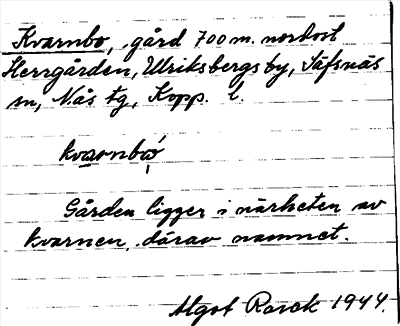 Kvarnbo, gård 700 m. nordost
Herrgården, Ulriksbergsby, Säfsnäs
sn, Nås tg, Kopp. l.
kvarnbó
Gården ligger i närheten av
kvarnen, därav namnet.
Algot Rosck 1944.